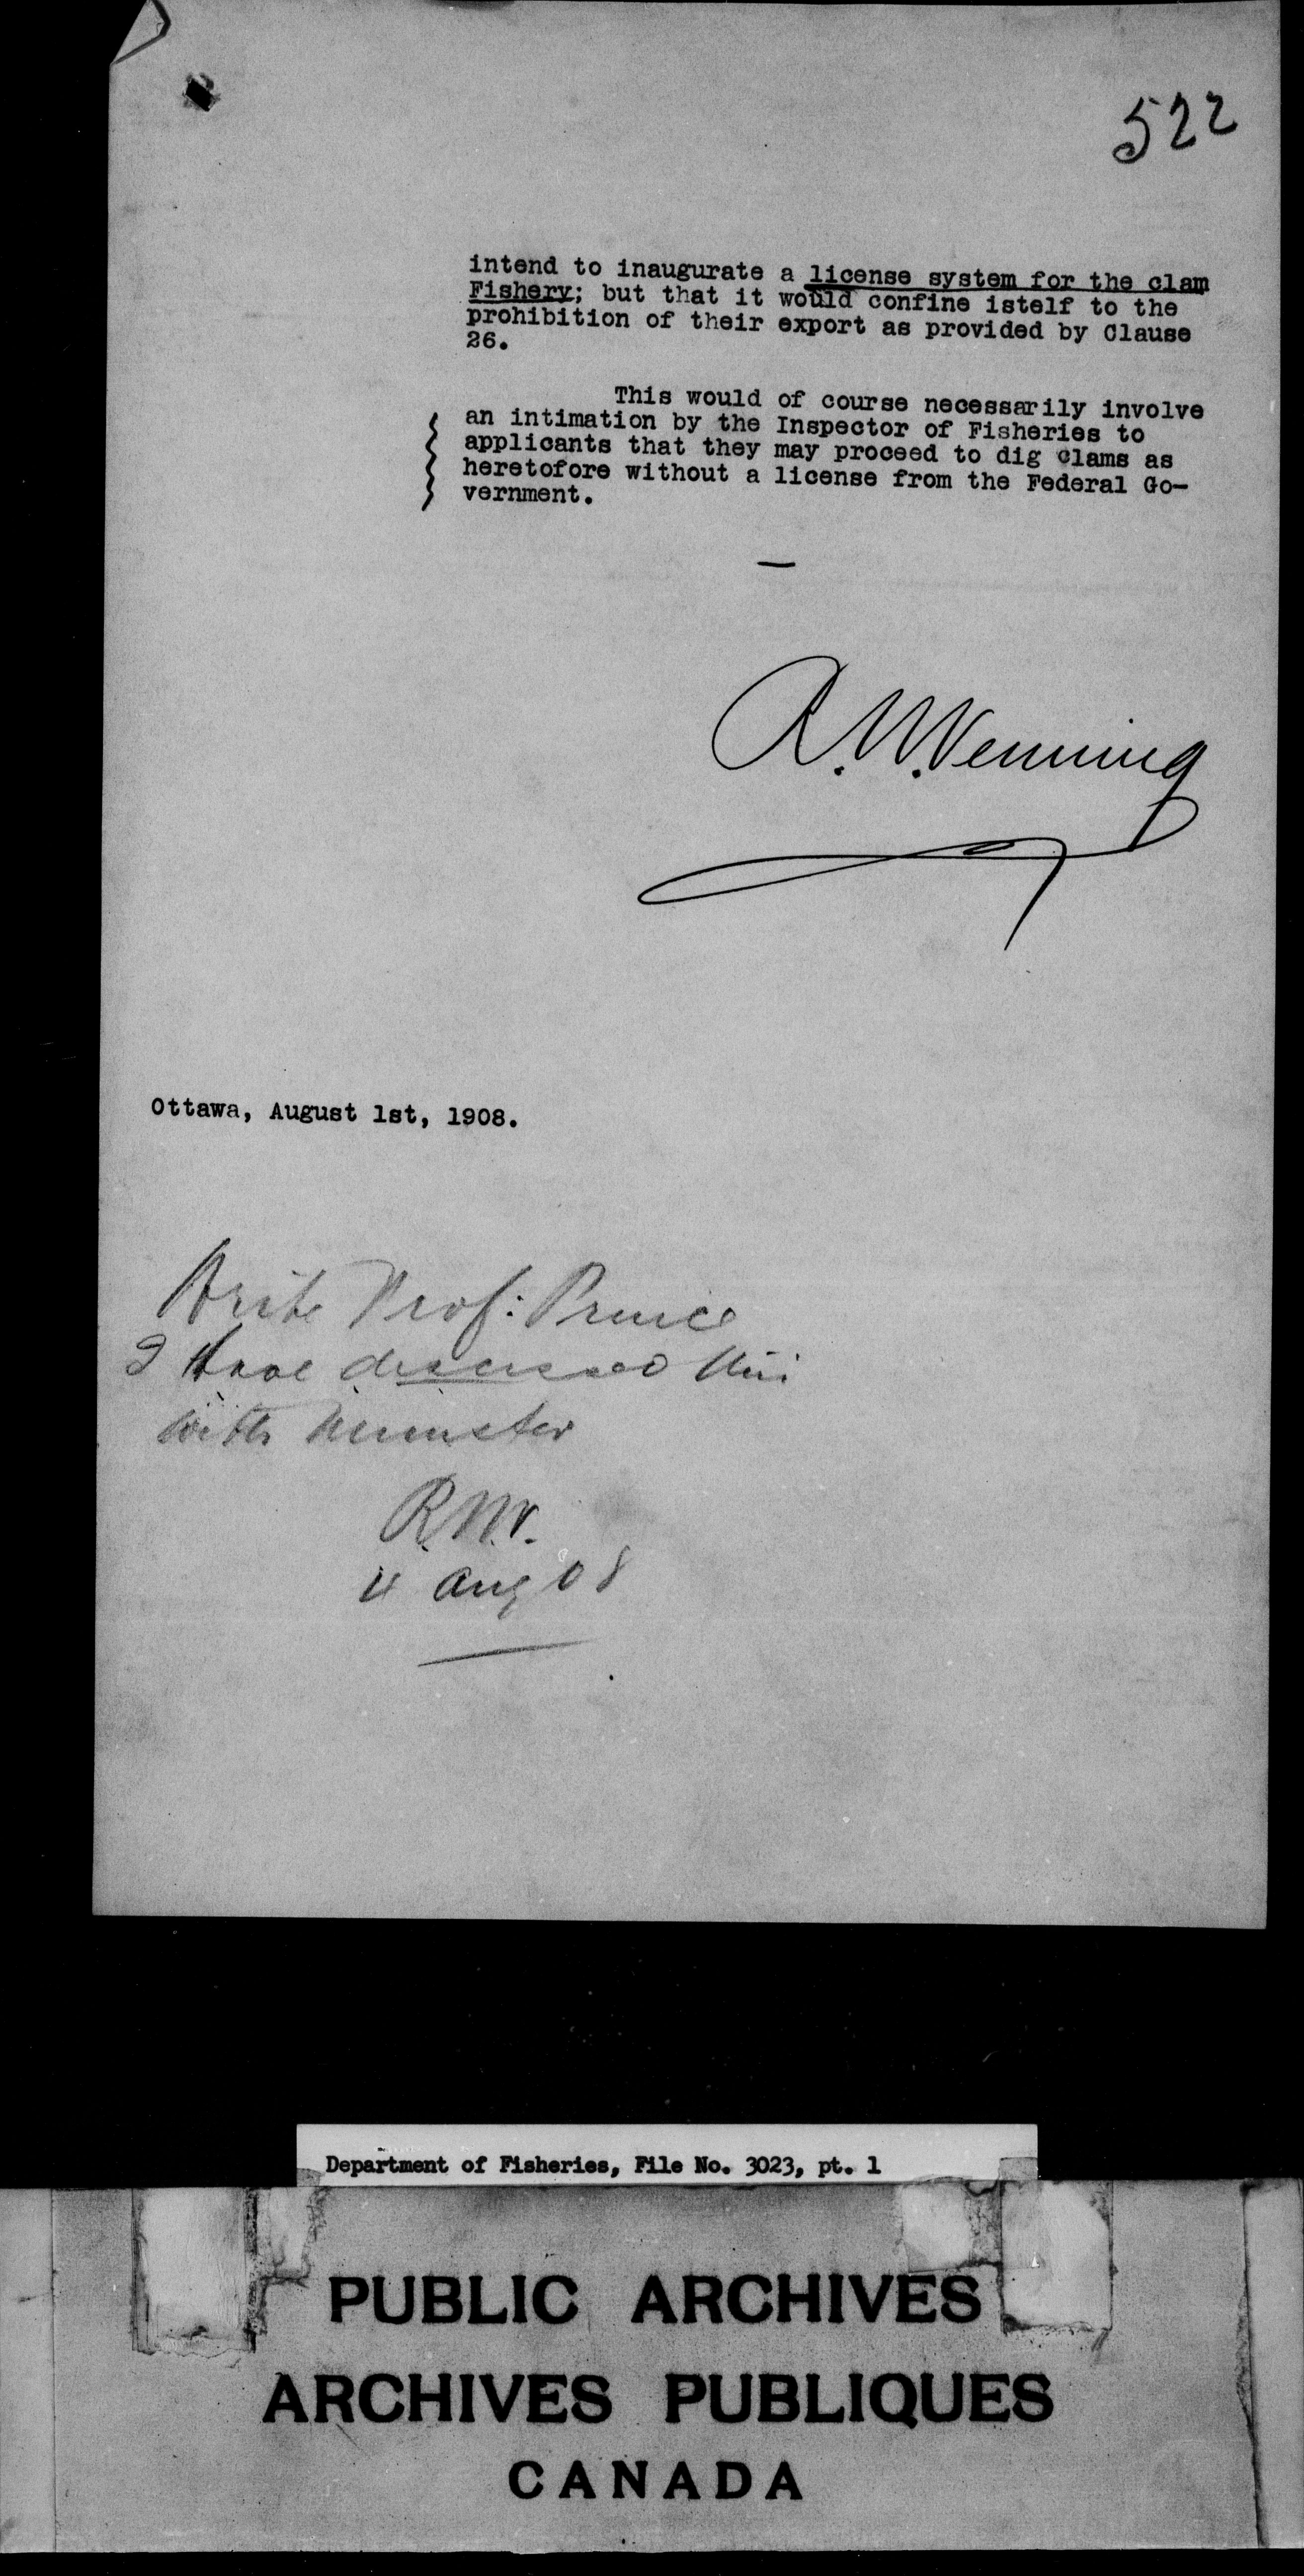 522
intend to inaugurate a license system for the clam
Fishery; but that it would confine istelf to the
prohibition of their export as provided by Clause
26.
This would of course necessarily involve
an intimation by the Inspector of Fisheries to
applicants that they may proceed to dig clams as
heretofore without a license from the Federal Go-
vernment.
R.N.Venning
Ottawa, August 1st, 1908.
Write Prof: Prince
I Have discussed this
with Minister
R.N.V.
4 Aug 08
Department of Fisheries, File No. 3023, pt. 1
PUBLIC ARCHIVES
ARCHIVES PUBLIQUES
CANADA